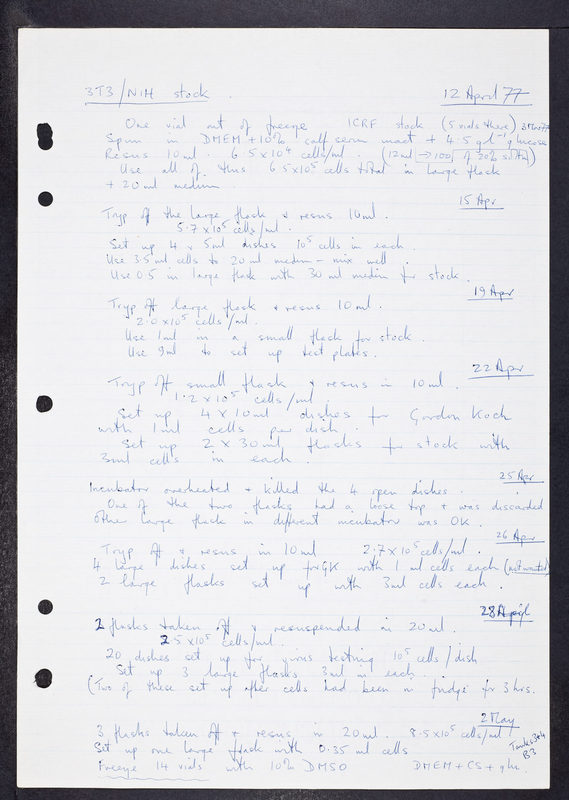 3T3/NIH stock. 12 April 77
One vial out of freeze ICRF stock (5 vials there)
Spun in DMEM + 10% calf serum + 4.5 gl⁻¹ glucose
Resus 10 ml. 6.5 x 10⁴ cells/ml. (12ml → 100
Use all of this 6.5x10⁵ cells total in large flask
+ 20 ml medium.
15 Apr
Tryp off the large flask & resus 10ml.
5.7 x10⁵ cells/ml.
Set up 4 x 5ml dishes 10⁵ cells in each.
Use 3.5 ml cells to 20 ml medium - mix well.
Use 0.5 in large flask with 30 ml medium for stock.
19 Apr
Tryp off large flask & resus 10 ml.
2.0 x10⁵ cells/ml.
Use 1ml in a small flask for stock.
Use 9ml to set up test plates.
22 Apr
Tryp off small flask & resus in 10 ml.
1.2 x 10⁵ cells/ml.
Set up 4 x 10 ml dishes for Gordon Koch
with 1 ml cells per dish.
Set up 2 x 30 ml flasks for stock with
3ml cells in each.
25 Apr
Incubator overheated & killed the 4 open dishes.
One of the two flasks had a loose top & was discarded
Other large flask in different incubator was OK.
26 Apr
Tryp off & resus in 10 ml 2.7 x 10⁵ cells/ml.
4 large dishes set up for GK with 1 ml cells each (not wanted)
2 large flasks set up with 3ml cells each.
28 April
2 flasks taken off & resuspended in 20 ml.
2.5 x10⁵ cells/ml.
20 dishes set up for virus testing 10⁵ cells/dish
Set up 3 large flasks 3ml in each.
(Two of these set up after cells had been in fridge for 3 hrs.
2 May
3 flasks taken off & resus in 20 ml. 8.5 x10⁵ cells/ml
Set up one large flask with 0.35 ml cells
Freeze 14 vials with 10% DMSO DMEM + CS + glu.
B3